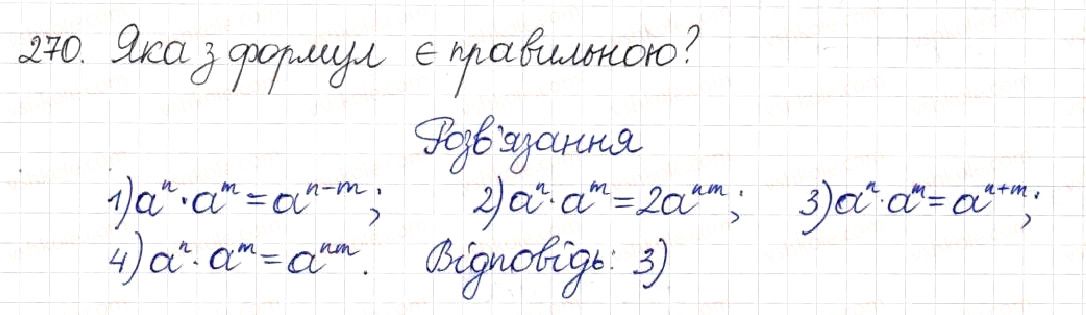 270. Яка з формул є правильною?
Розв'язання
1) aⁿ · aᵐ = aⁿ⁻ᵐ; 2) aⁿ · aᵐ = 2aⁿᵐ; 3) aⁿ · aᵐ = aⁿ⁺ᵐ;
4) aⁿ · aᵐ = aⁿᵐ. Відповідь: 3)